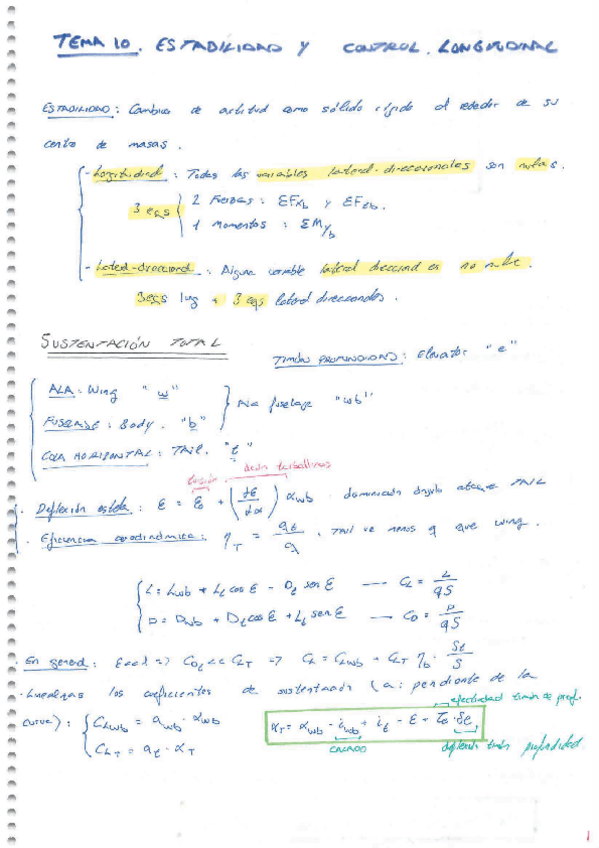 TEMA 10. ESTABILIDAD Y CONTROL LONGITUDINAL
ESTABILIDAD: Cambios de actitud como sólido rígido alrededor de su
centro de masas.
- Longitudinal: Todas las variables lateral-direccionales son nulas.
3 eqs { 2 Fuerzas: ΣFxb y ΣFzb.
1 Momentos: ΣMyb
- Lateral-direccional: Alguna variable lateral direccional es no nula.
3 eqs lug + 3 eqs lateral direccionales.
SUSTENTACIÓN TOTAL
TIMÓN PROFUNDIDAD: Elevator "e"
ALA: Wing "w"
FUSELAJE: Body. "b" } Ala fuselaje "wb"
COLA HORIZONTAL: TAIL. "t"
torbellinos
· Deflexión estela: ε = ε0 + (dε/dα) αwb. ángulo ataque TAIL
· Eficiencia aerodinámica: ηT = qt/q. TAIL ve menos q que wing.
L = Lwb + Lt cos ε - Dt sen ε — CL = L/qS
D = Dwb + Dt cos ε + Lt sen ε — CD = D/qS
· En general: ε<<1 => CDt << CLT => CL = CLwb + CLT ηt · St/S
· Linealizas los coeficientes de sustentación (a: pendiente de la
efectividad timón de prof.
curva): { CLwb = awb · αwb
αT = αwb - iwb + it - ε + τe · δe
CLT = at · αT
CALADO
deflexión timón profundidad
1